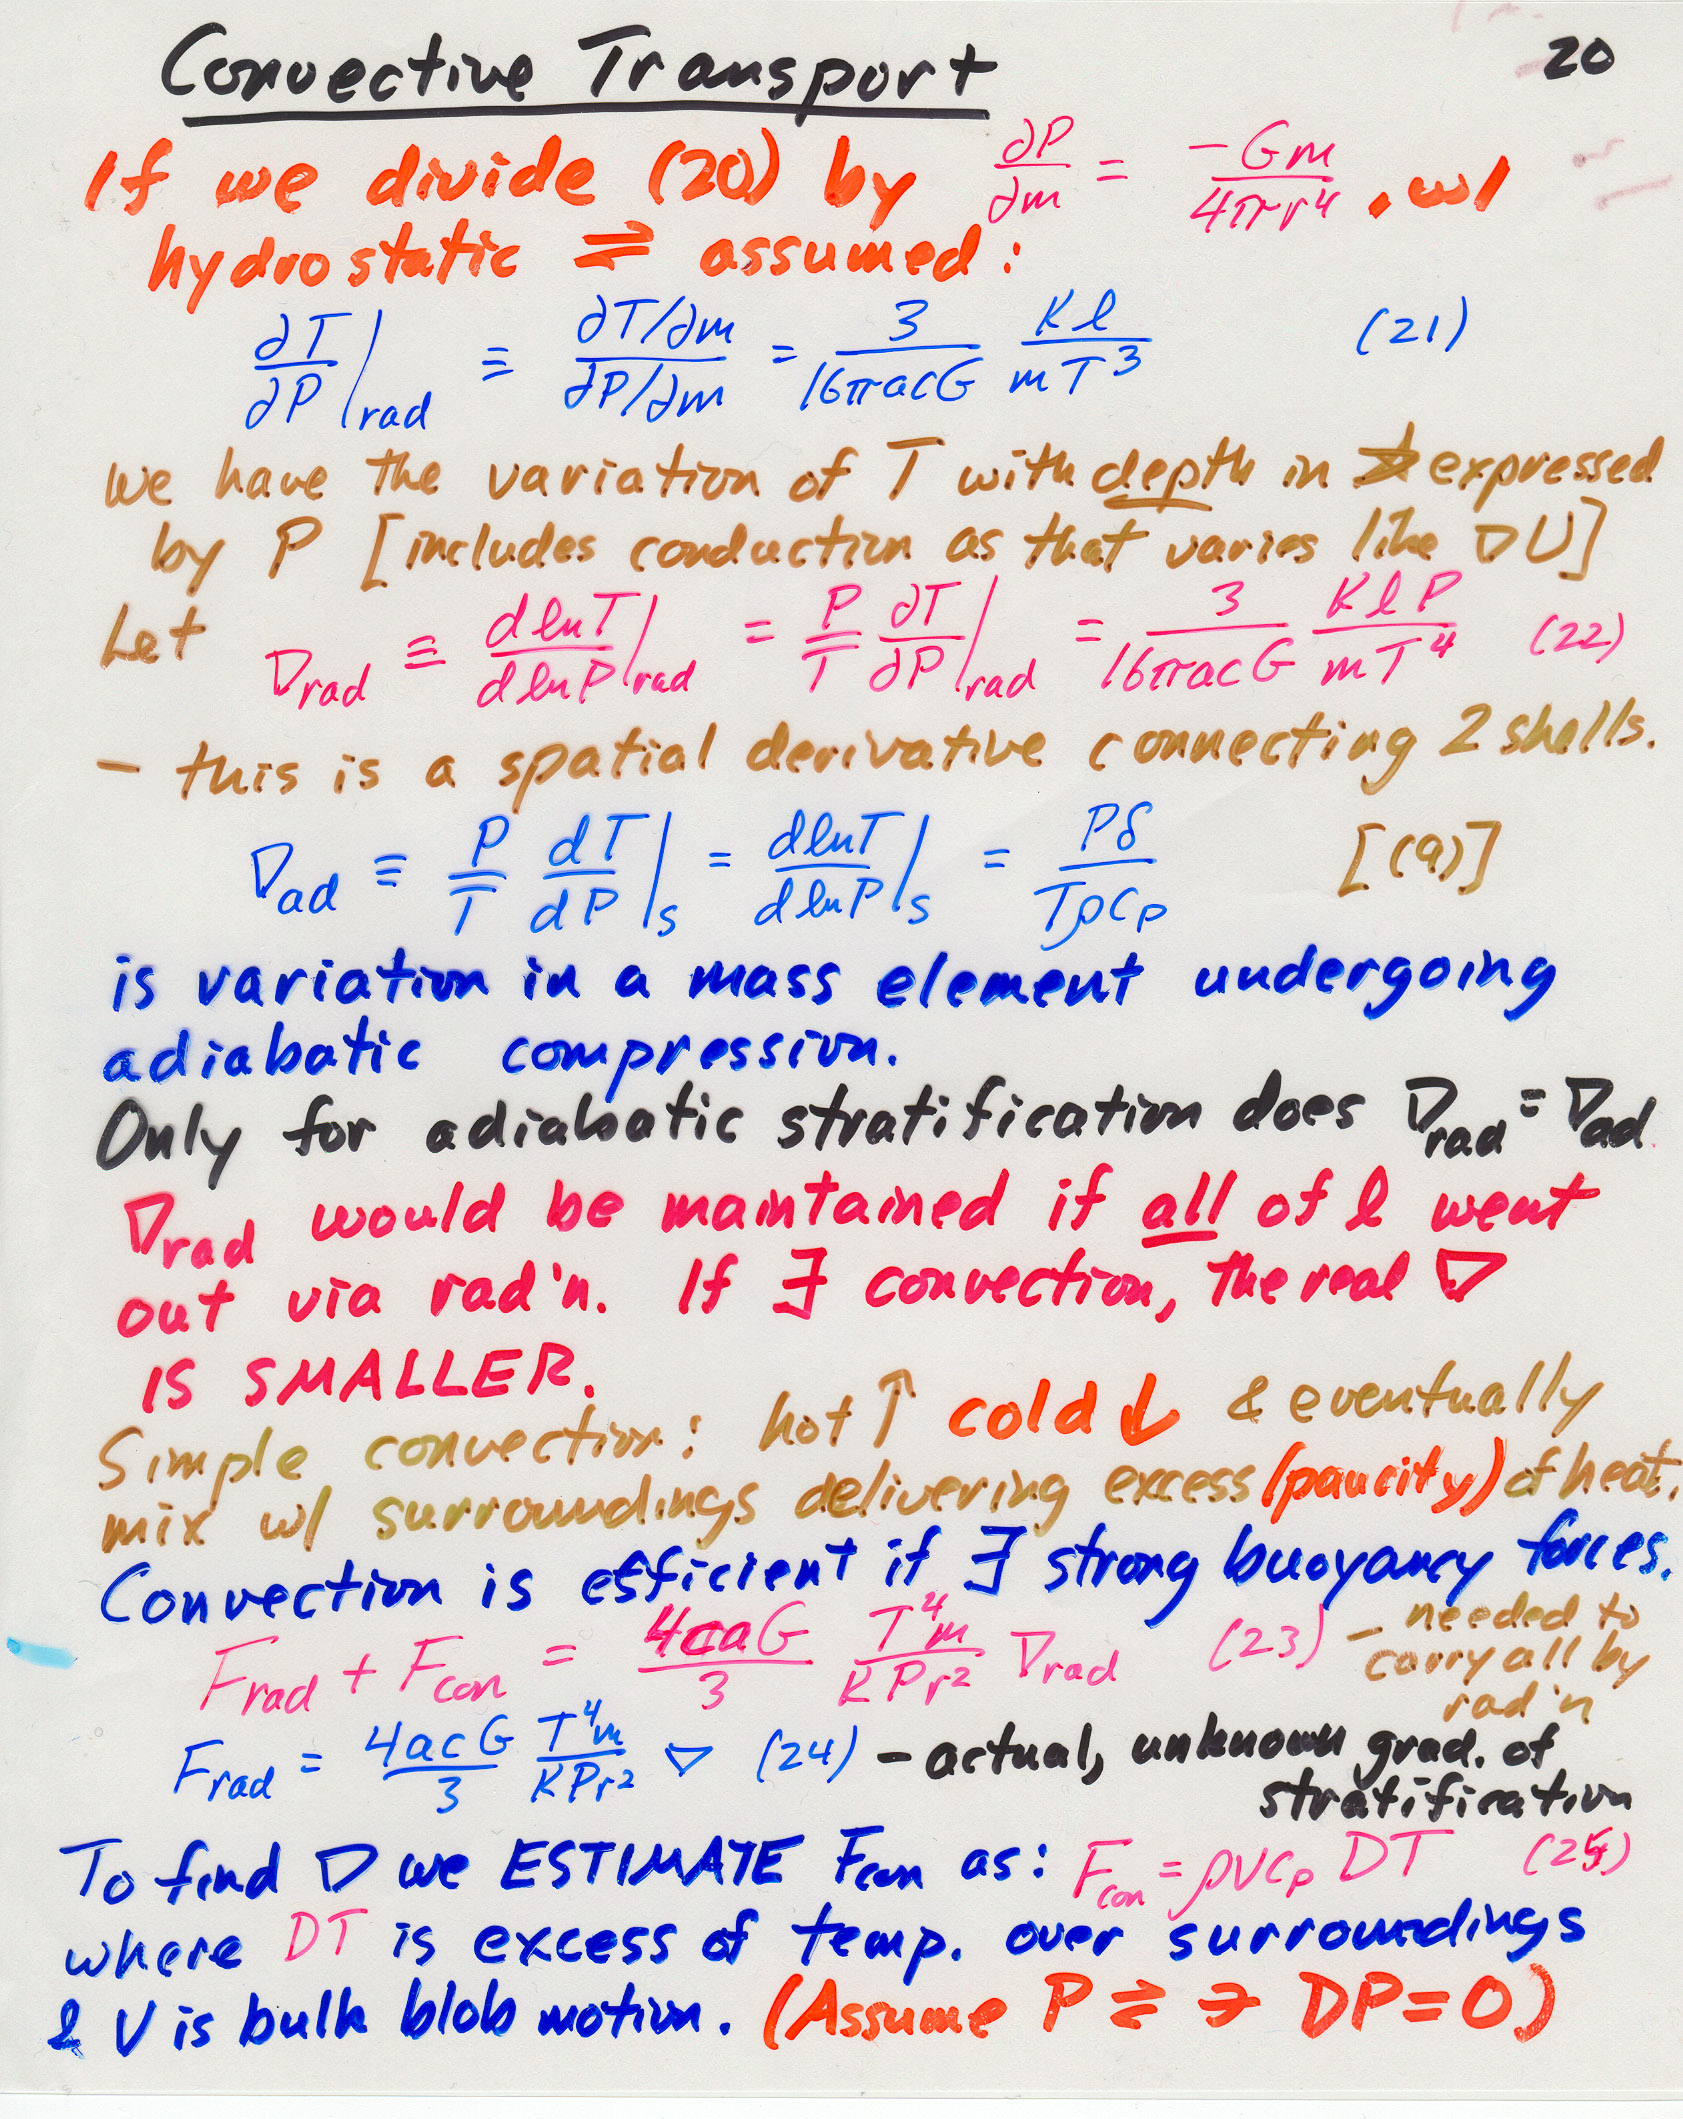 Convective Transport 20
If we divide (20) by ∂P/∂m = -Gm/4πr⁴ , w/
hydrostatic ⇌ assumed:
∂T/∂P|rad ≡ (∂T/∂m)/(∂P/∂m) = 3/(16πacG) κl/(mT³) (21)
we have the variation of T with depth in ☆ expressed
by P [includes conduction as that varies like ∇U]
Let ∇rad ≡ dlnT/dlnP|rad = P/T ∂T/∂P|rad = 3/(16πacG) κlP/(mT⁴) (22)
- this is a spatial derivative connecting 2 shells.
∇ad ≡ P/T dT/dP|s = dlnT/dlnP|s = Pδ/(Tρcp) [(9)]
is variation in a mass element undergoing
adiabatic compression.
Only for adiabatic stratification does ∇rad = ∇ad.
∇rad would be maintained if all of l went
out via rad'n. If ∃ convection, the real ∇
IS SMALLER.
Simple convection: hot ↑ cold ↓ & eventually
mix w/ surroundings delivering excess (paucity) of heat.
Convection is efficient if ∃ strong buoyancy forces.
Frad + Fcon = 4caG/3 T⁴m/(κPr²) ∇rad (23) - needed to
carry all by
rad'n
Frad = 4acG/3 T⁴m/(κPr²) ∇ (24) - actual, unknown grad. of
stratification
To find ∇ we ESTIMATE Fcon as: Fcon = ρvcp DT (25)
where DT is excess of temp. over surroundings
& v is bulk blob motion. (Assume P ⇌ → DP=0)